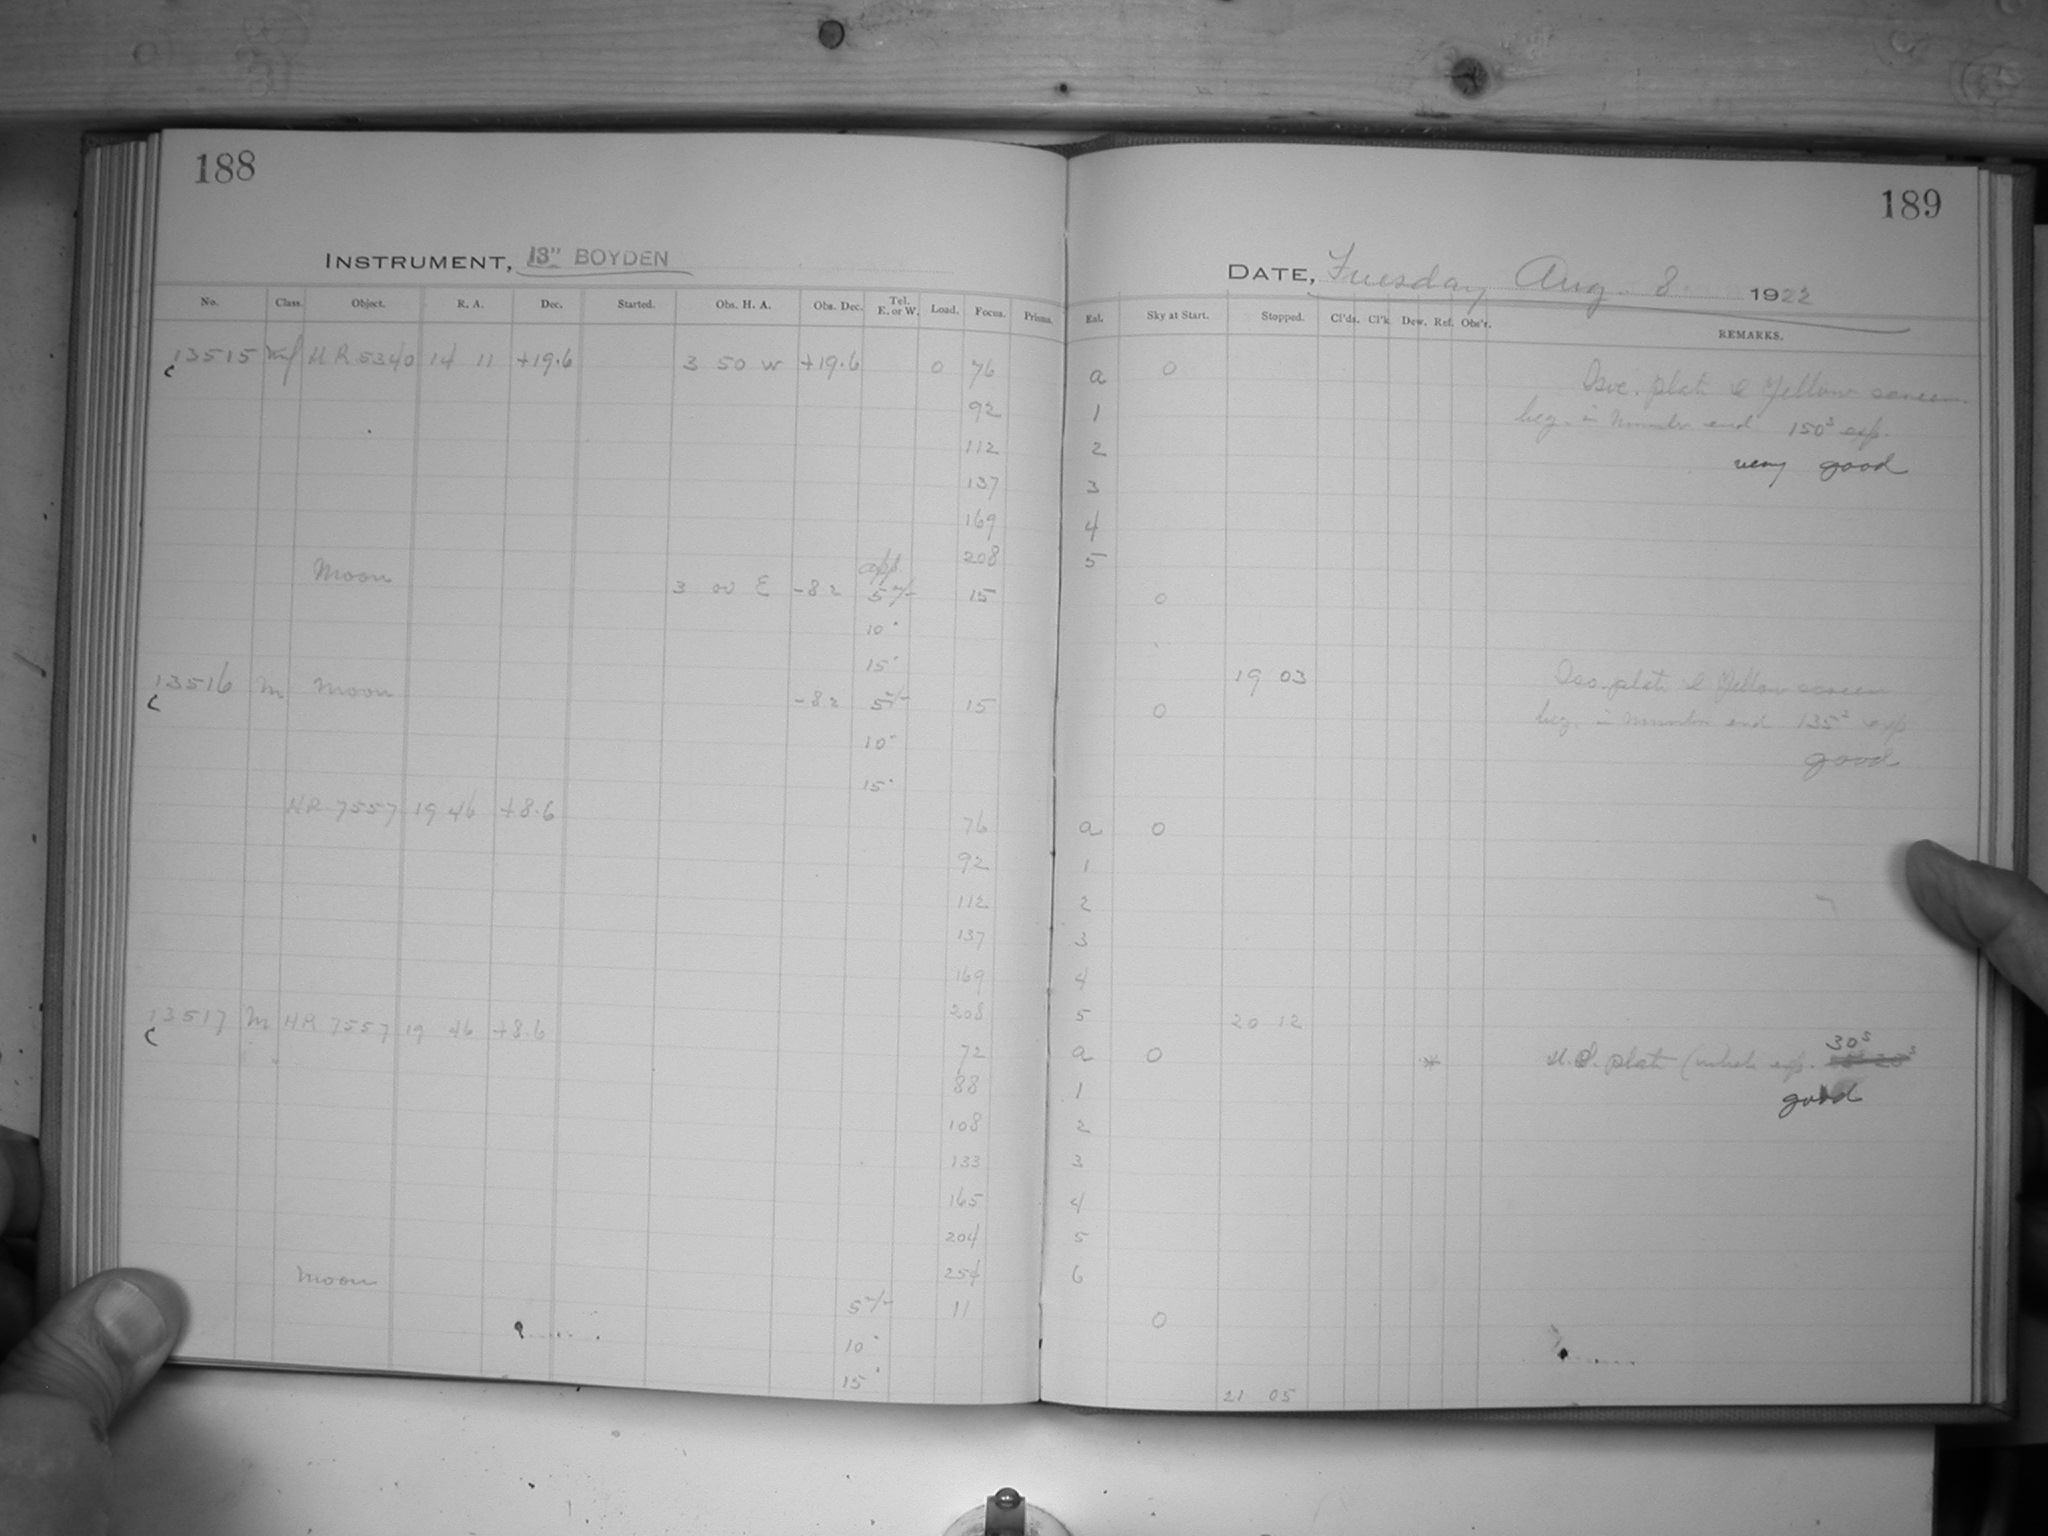 188
INSTRUMENT, 13" BOYDEN
No. Class. Object. R. A. Dec. Started. Obs. H. A. Obs. Dec. Tel. E. or W. Load. Focus. Prisms.
13515 HR 5340 14 11 +19.6 3 50 W +19.6 0 76
92
112
137
169
208
Moon 3 00 E -82 15
10
15
13516 M Moon -82 15
10
15
HR 7557 19 46 +8.6 76
92
112
137
169
208
13517 M HR 7557 19 46 +8.6 72
88
108
133
165
204
254
Moon 11
10
15
189
DATE, Tuesday Aug. 8 1922
Eal. Sky at Start. Stopped. Cl'ds. Cl'k Dew. Ref. Obs'r. REMARKS.
a 0 plate & Yellow screen
1 beg. in number end 150s exp.
2 very good
3
4
5
0
19 03 Iso. plate & Yellow screen
0 beg. in number end 135s exp
good
a 0
1
2
3
4
5 20 12
a 0 * plate (whole exp. 30s
1 good
2
3
4
5
6
0
21 05